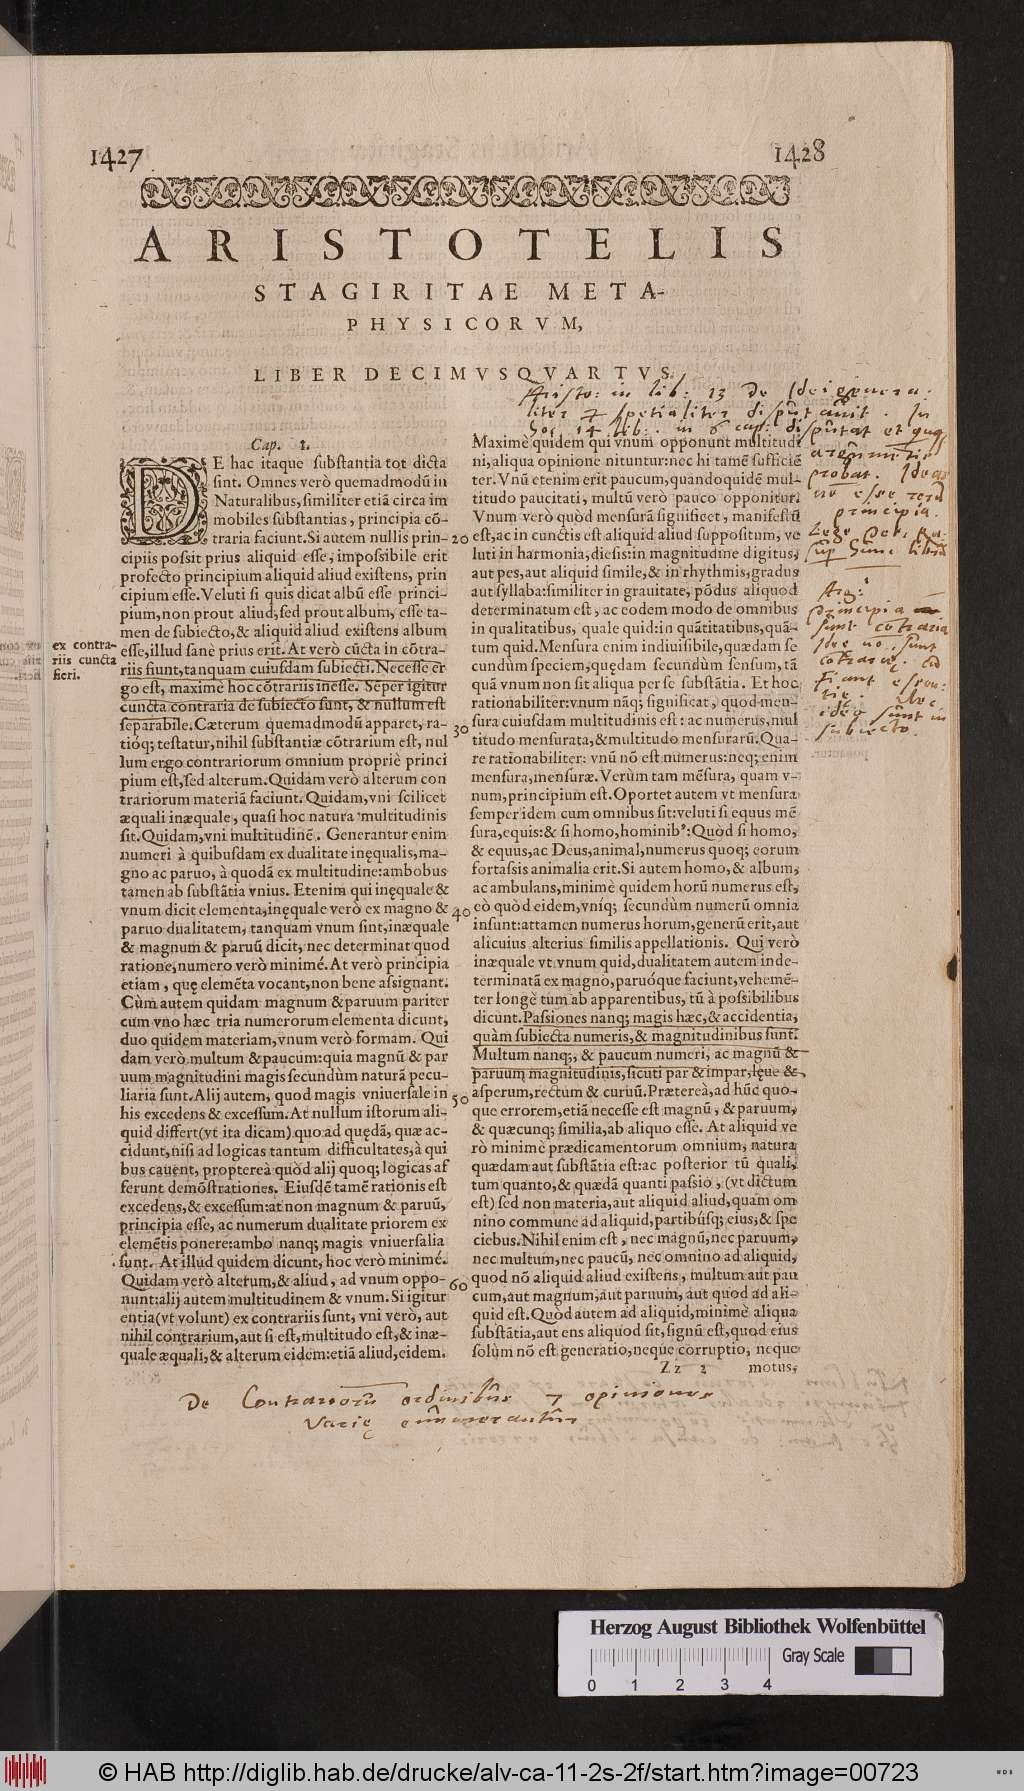 1427
1428
ARISTOTELIS
STAGIRITAE META-
PHYSICORVM,
LIBER DECIMVSQVARTVS.
Aristo: in lib: 13 De Ideis genera:
liter & spetialiter disputavit. In
hoc 14 lib: in 6 cap: disputat et
probat. Ideas
no esse rerū
principia.
Lege Pet.
sup hunc librū
Arg:
principia
sunt cōtraria
Ideę nō sunt
cōtrarię.
subiecto.
Cap. 1.
DE hac itaque substantia tot dicta
sint. Omnes verò quemadmodū in
Naturalibus, similiter etiā circa im
mobiles substantias, principia cō-
traria faciunt. Si autem nullis prin-
cipiis possit prius aliquid esse, impossibile erit
profecto principium aliquid aliud existens, prin
cipium esse. Veluti si quis dicat albū esse princi-
pium, non prout aliud, sed prout album, esse ta-
men de subiecto, & aliquid aliud existens album
esse, illud sanè prius erit. At verò cūcta in cōtra-
riis fiunt, tanquam cuiusdam subiecti. Necesse er
go est, maximè hoc cōtrariis inesse. Sēper igitur
cuncta contraria de subiecto sunt, & nullum est
separabile. Cæterum quemadmodū apparet, ra-
tióq; testatur, nihil substantiæ cōtrarium est, nul
lum ergo contrariorum omnium propriè princi
pium est, sed alterum. Quidam verò alterum con
trariorum materiā faciunt. Quidam, vni scilicet
æquali inæquale, quasi hoc natura multitudinis
sit. Quidam, vni multitudinē. Generantur enim
numeri à quibusdam ex dualitate inęqualis, ma-
gno ac paruo, à quodā ex multitudine: ambobus
tamen ab substātia vnius. Etenim qui inęquale &
vnum dicit elementa, inęquale verò ex magno &
paruo dualitatem, tanquam vnum sint, inæquale
& magnum & paruū dicit, nec determinat quod
ratione, numero verò minimé. At verò principia
etiam, quę elemēta vocant, non bene assignant.
Cùm autem quidam magnum & paruum pariter
cum vno hæc tria numerorum elementa dicunt,
duo quidem materiam, vnum verò formam. Qui
dam verò multum & paucum: quia magnū & par
uum magnitudini magis secundùm naturā pecu-
liaria sunt. Alij autem, quod magis vniuersale in
his excedens & excessum. At nullum istorum ali-
quid differt (vt ita dicam) quo ad quędā, quæ ac-
cidunt, nisi ad logicas tantum difficultates, à qui
bus cauent, proptereà quòd alij quoq; logicas af
ferunt demōstrationes. Eiusdē tamē rationis est
excedens, & excessum: at non magnum & paruū,
principia esse, ac numerum dualitate priorem ex
elemētis ponere: ambo nanq; magis vniuersalia
sunt. At illud quidem dicunt, hoc verò minimé.
Quidam verò alterum, & aliud, ad vnum oppo-
nunt: alij autem multitudinem & vnum. Si igitur
entia (vt volunt) ex contrariis sunt, vni verò, aut
nihil contrarium, aut si est, multitudo est, & inæ-
quale æquali, & alterum eidem: etiā aliud, eidem.
ex contra-
riis cuncta
fieri.
20
30
40
50
60
Maximè quidem qui vnum opponunt multitudi
ni, aliqua opinione nituntur: nec hi tamē sufficiē
ter. Vnū etenim erit paucum, quandoquidē mul-
titudo paucitati, multū verò pauco opponitur.
Vnum verò quòd mensurā significet, manifestū
est, ac in cunctis est aliquid aliud suppositum, ve
luti in harmonia, diesis: in magnitudine digitus,
aut pes, aut aliquid simile, & in rhythmis, gradus
aut syllaba: similiter in grauitate, pōdus aliquod
determinatum est, ac eodem modo de omnibus
in qualitatibus, quale quid: in quātitatibus, quā-
tum quid. Mensura enim indiuisibile, quædam se
cundùm speciem, quędam secundùm sensum, tā
quā vnum non sit aliqua per se substātia. Et hoc
rationabiliter: vnum nāq; significat, quod men-
sura cuiusdam multitudinis est: ac numerus, mul
titudo mensurata, & multitudo mensurarū. Qua-
re rationabiliter: vnū nō est numerus: neq; enim
mensura, mensuræ. Verùm tam mēsura, quam v-
num, principium est. Oportet autem vt mensura
semper idem cum omnibus sit: veluti si equus mē
sura, equis: & si homo, hominib⁹: Quòd si homo,
& equus, ac Deus, animal, numerus quoq; eorum
fortassis animalia erit. Si autem homo, & album,
ac ambulans, minimè quidem horū numerus est,
eò quòd eidem, vníq; secundùm numerū omnia
insunt: attamen numerus horum, generū erit, aut
alicuius alterius similis appellationis. Qui verò
inæquale vt vnum quid, dualitatem autem inde-
terminatā ex magno, paruóque faciunt, vehemē-
ter longè tum ab apparentibus, tū à possibilibus
dicūnt. Passiones nanq; magis hæc, & accidentia,
quàm subiecta numeris, & magnitudinibus sunt.
Multum nanq;, & paucum numeri, ac magnū &
paruum magnitudinis, sicuti par & impar, lęue &
asperum, rectum & curuū. Prætereà, ad hūc quo-
que errorem, etiā necesse est magnū, & paruum,
& quæcunq; similia, ab aliquo esse. At aliquid ve
rò minimè prædicamentorum omnium, natura
quædam aut substātia est: ac posterior tū quali,
tum quanto, & quædā quanti passio, (vt dictum
est) sed non materia, aut aliquid aliud, quam om
nino commune ad aliquid, partibúsq; eius, & spe
ciebus. Nihil enim est, nec magnū, nec paruum,
nec multum, nec paucū, nec omnino ad aliquid,
quod nō aliquid aliud existens, multum aut pau
cum, aut magnum, aut paruum, aut quod ad ali-
quid est. Quòd autem ad aliquid, minimè aliqua
substātia, aut ens aliquod sit, signū est, quod eius
solùm nō est generatio, neque corruptio, neque
Zz 2 motus,
De Contrariorū ordinibūs & opiniones
Varię enūmerantūr
Herzog August Bibliothek Wolfenbüttel
Gray Scale
0 1 2 3 4
© HAB http://diglib.hab.de/drucke/alv-ca-11-2s-2f/start.htm?image=00723